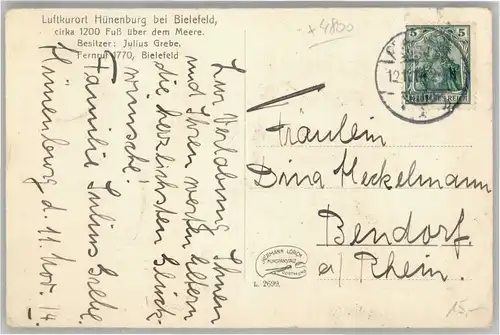 Luftkurort Hünenburg bei Bielefeld,
cirka 1200 Fuß über dem Meere.
Besitzer: Julius Grebe.
Fernruf 1770, Bielefeld
+4800
5 5
DEUTSCHES REICH
Zur Verlobung Ihnen
und Ihren werten Eltern
die herzlichsten Glück-
wünsche.
Familie Julius Grebe.
Hünenburg d. 11. Nov. 14
Fräulein
Dina Heckelmann
Bendorf
a/Rhein.
HERMANN LORCH
KUNSTANSTALT
DORTMUND
L. 2699.
15,-